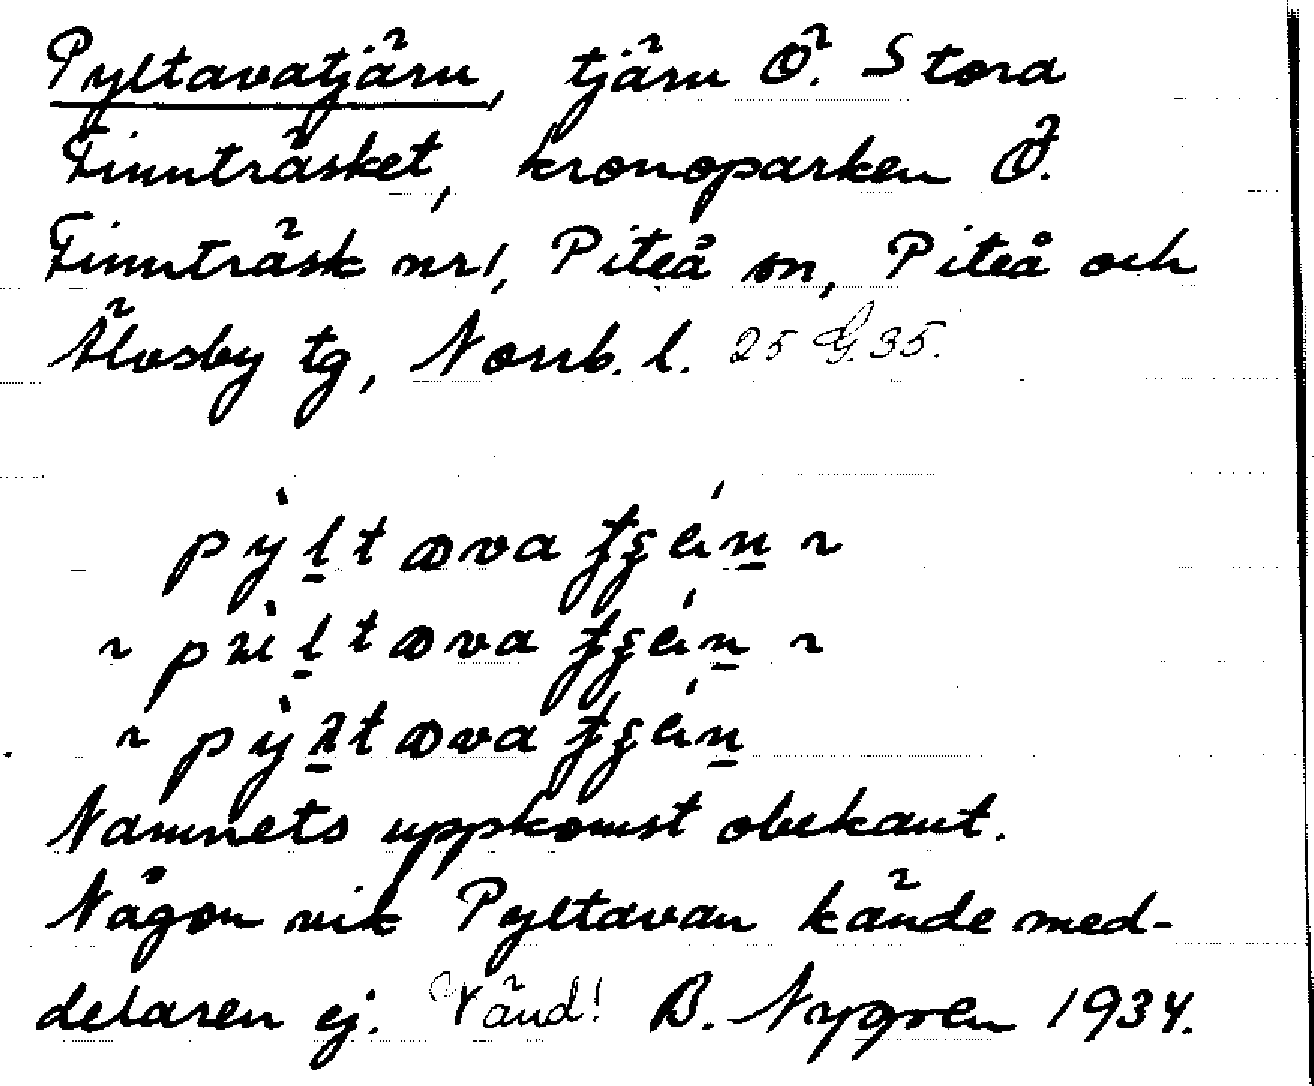 Pyltavatjärn, tjärn Ö. Stora
Finnträsket, kronoparken Ö.
Finnträsk nr 1, Piteå sn, Piteå och
Älvsby tg, Norrb. l. 25 G. 35.
Namnets uppkomst obekant.
Någon vik Pyltavan kände med-
delaren ej. Vänd! B. Nygren 1934.